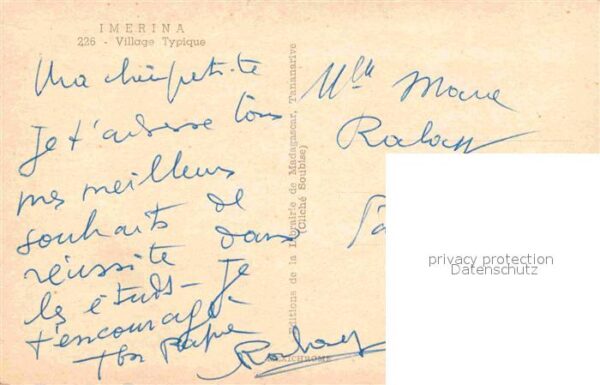 IMERINA
226 - Village Typique
Ma chère petite
Je t'adresse tous
mes meilleurs
souhaits de
réussite dans
les études - Je
t'encourage.
ton Papa
Editions de la Librairie de Madagascar, Tananarive
(Cliché Soubise)
Mlle
privacy protection
Datenschutz